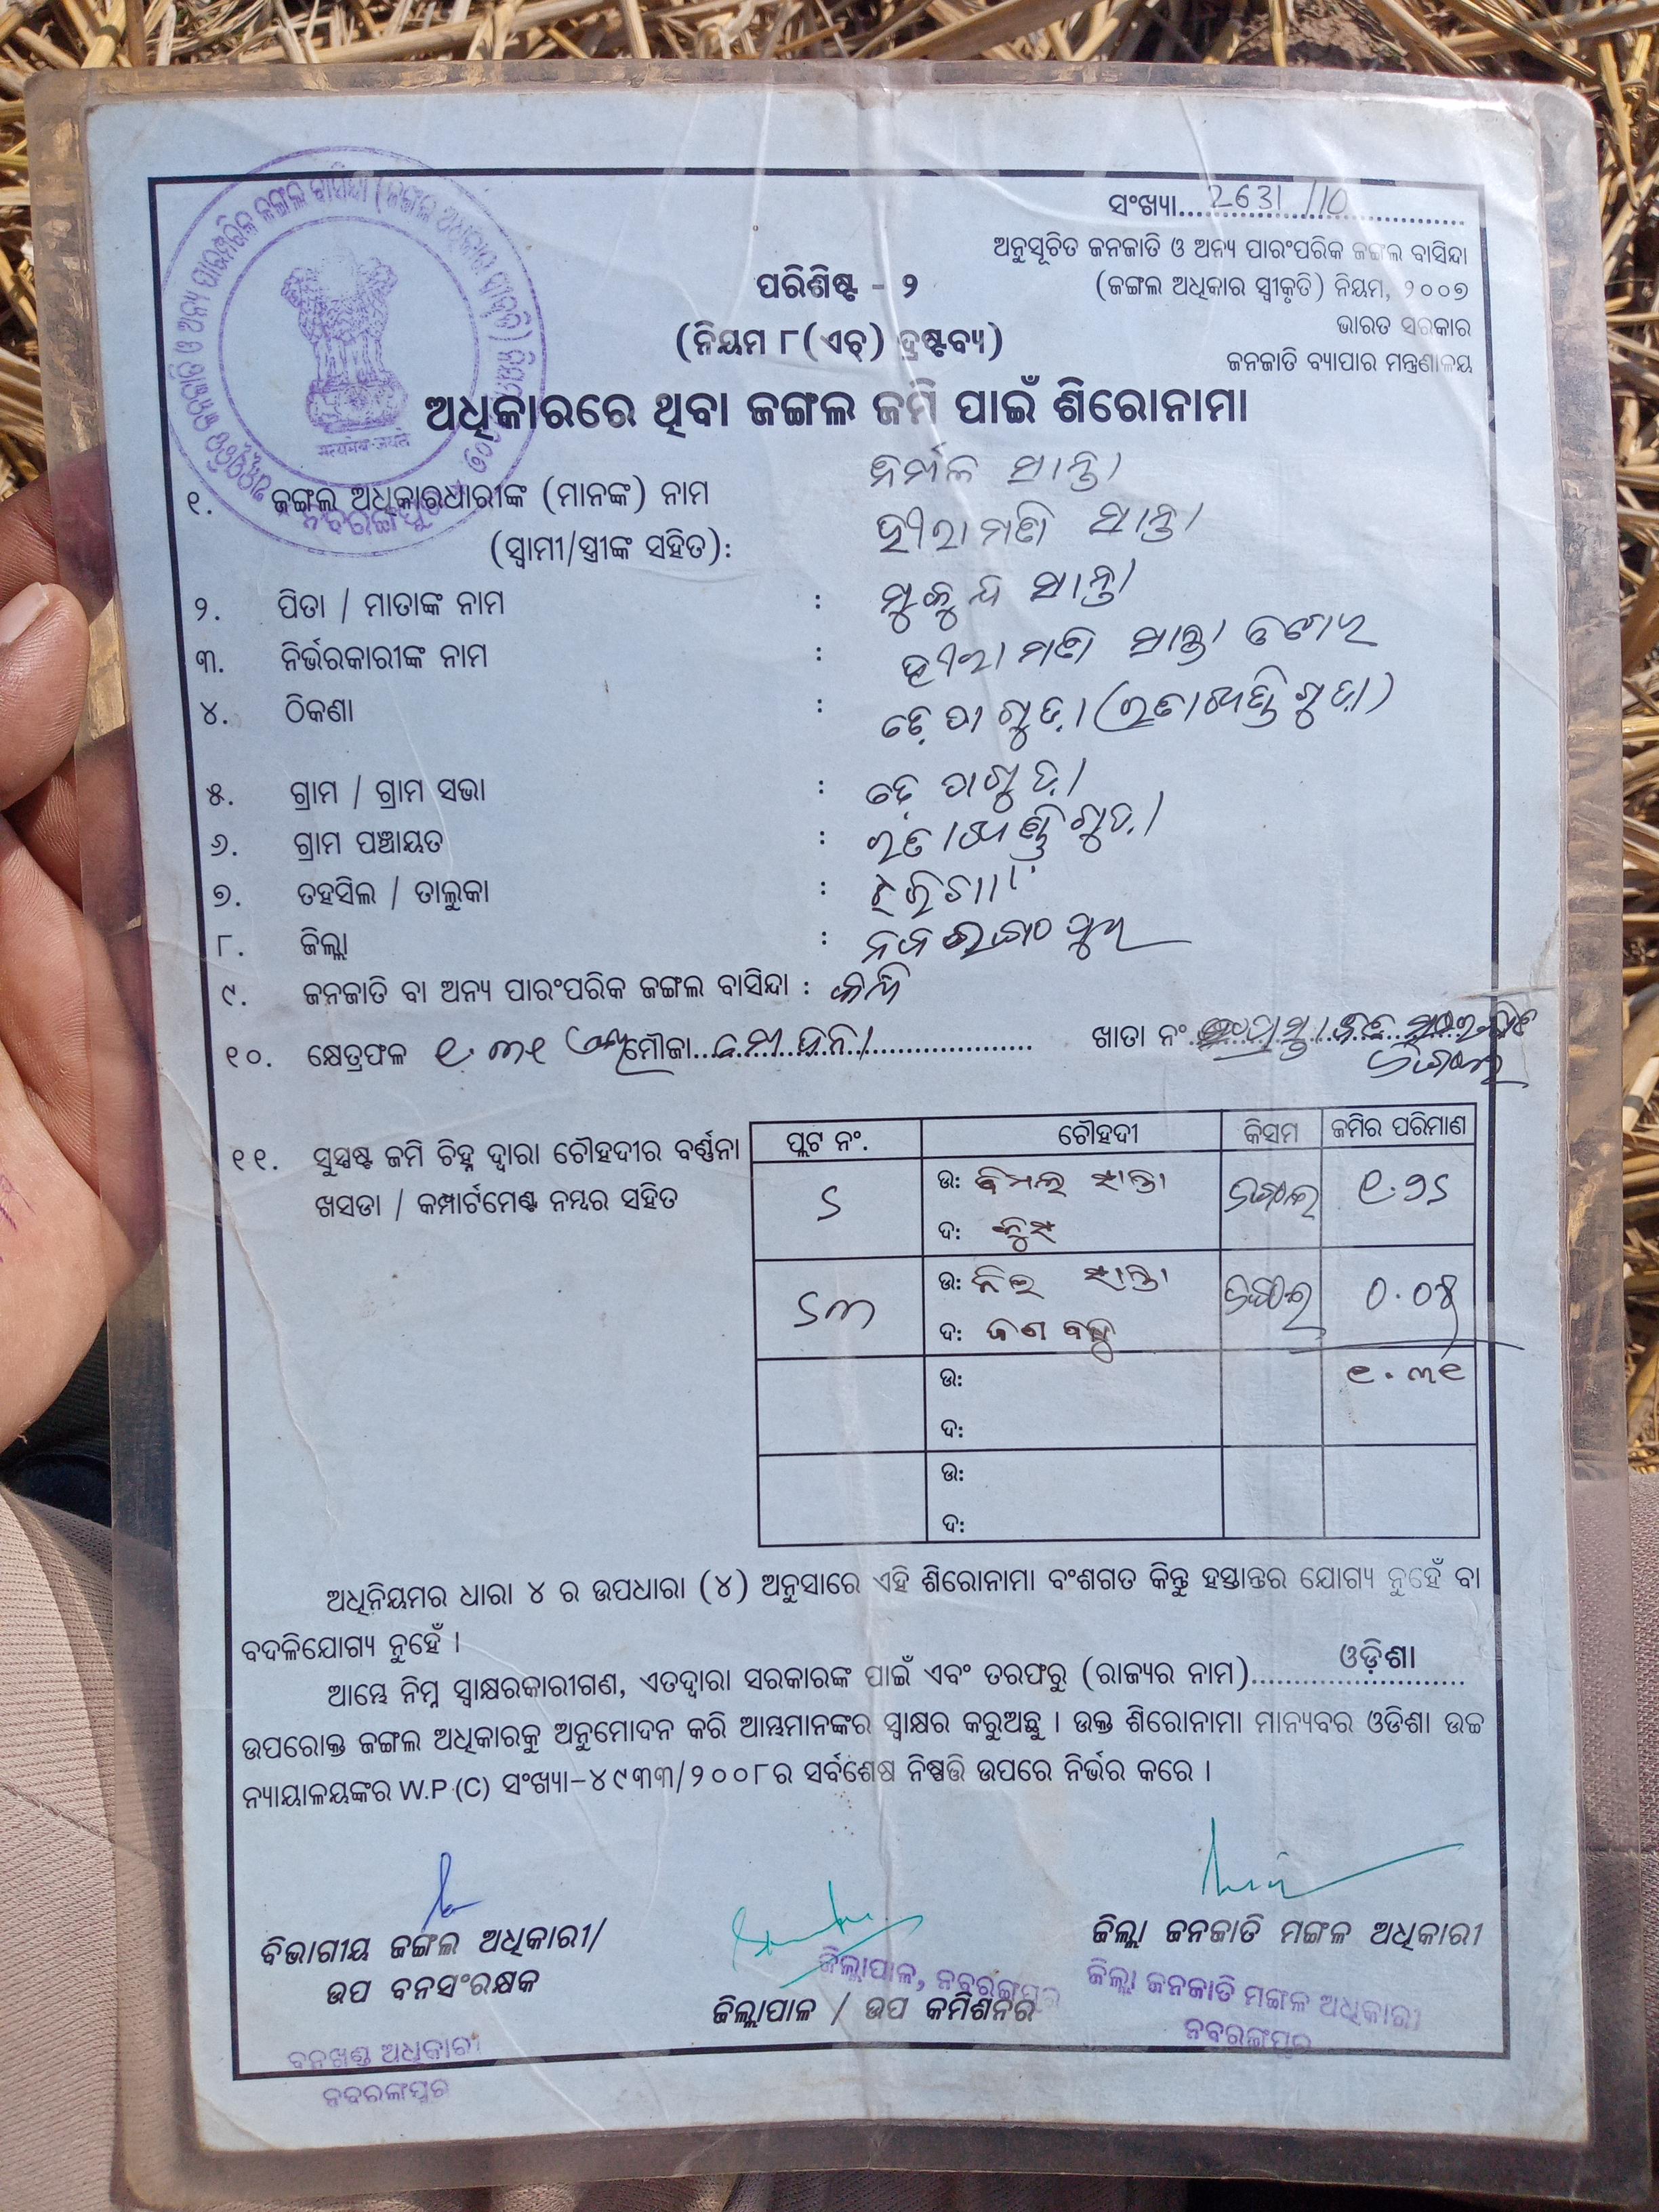 ସଂଖ୍ୟା 2631/10
ଅନୁସୂଚିତ ଜନଜାତି ଓ ଅନ୍ୟ ପାରଂପରିକ ଜଙ୍ଗଲ ବାସିନ୍ଦା
(ଜଙ୍ଗଲ ଅଧିକାର ସ୍ୱୀକୃତି) ନିୟମ, ୨୦୦୭
ଭାରତ ସରକାର
ଜନଜାତି ବ୍ୟାପାର ମନ୍ତ୍ରଣାଳୟ
ପରିଶିଷ୍ଟ - ୨
(ନିୟମ ୮(ଏଚ୍) ଦ୍ରଷ୍ଟବ୍ୟ)
ଅଧିକାରରେ ଥିବା ଜଙ୍ଗଲ ଜମି ପାଇଁ ଶିରୋନାମା
सत्यमेव जयते
୧. ଜଙ୍ଗଲ ଅଧିକାରଧାରୀଙ୍କ (ମାନଙ୍କ) ନାମ ନିର୍ମଳ ସାନ୍ତା
(ସ୍ୱାମୀ/ସ୍ତ୍ରୀଙ୍କ ସହିତ): ହୀରାମଣି ସାନ୍ତା
୨. ପିତା / ମାତାଙ୍କ ନାମ : ମୁକୁନ୍ଦ ସାନ୍ତା
୩. ନିର୍ଭରକାରୀଙ୍କ ନାମ : ହୀରାମଣି ସାନ୍ତା
୪. ଠିକଣା :
୫. ଗ୍ରାମ / ଗ୍ରାମ ସଭା :
୬. ଗ୍ରାମ ପଞ୍ଚାୟତ :
୭. ତହସିଲ / ତାଲୁକା : ଝରିଗାଁ
୮. ଜିଲ୍ଲା : ନବରଙ୍ଗପୁର
୯. ଜନଜାତି ବା ଅନ୍ୟ ପାରଂପରିକ ଜଙ୍ଗଲ ବାସିନ୍ଦା :
୧୦. କ୍ଷେତ୍ରଫଳ ୧.୩୧ ମୌଜା ଖାତା ନଂ
୧୧. ସୁସ୍ପଷ୍ଟ ଜମି ଚିହ୍ନ ଦ୍ୱାରା ଚୌହଦୀର ବର୍ଣ୍ଣନା
ଖସଡା / କମ୍ପାର୍ଟମେଣ୍ଟ ନମ୍ବର ସହିତ
ପ୍ଲଟ ନଂ. ଚୌହଦୀ କିସମ ଜମିର ପରିମାଣ
ଉ: ବିମଲ ସାନ୍ତା
ଦ:
ଉ: ସାନ୍ତା
ଦ:
ଉ: ୧.୩୧
ଦ:
ଉ:
ଦ:
ଅଧିନିୟମର ଧାରା ୪ ର ଉପଧାରା (୪) ଅନୁସାରେ ଏହି ଶିରୋନାମା ବଂଶଗତ କିନ୍ତୁ ହସ୍ତାନ୍ତର ଯୋଗ୍ୟ ନୁହେଁ ବା
ବଦଳିଯୋଗ୍ୟ ନୁହେଁ ।
ଆମ୍ଭେ ନିମ୍ନ ସ୍ୱାକ୍ଷରକାରୀଗଣ, ଏତଦ୍ୱାରା ସରକାରଙ୍କ ପାଇଁ ଏବଂ ତରଫରୁ (ରାଜ୍ୟର ନାମ) ଓଡ଼ିଶା
ଉପରୋକ୍ତ ଜଙ୍ଗଲ ଅଧିକାରକୁ ଅନୁମୋଦନ କରି ଆମ୍ଭମାନଙ୍କର ସ୍ୱାକ୍ଷର କରୁଅଛୁ । ଉକ୍ତ ଶିରୋନାମା ମାନ୍ୟବର ଓଡିଶା ଉଚ୍ଚ
ନ୍ୟାୟାଳୟଙ୍କର W.P.(C) ସଂଖ୍ୟା-୪୯୩୩/୨୦୦୮ର ସର୍ବଶେଷ ନିଷ୍ପତ୍ତି ଉପରେ ନିର୍ଭର କରେ ।
ବିଭାଗୀୟ ଜଙ୍ଗଲ ଅଧିକାରୀ/
ଉପ ବନସଂରକ୍ଷକ
ବନଖଣ୍ଡ ଅଧିକାରୀ
ନବରଙ୍ଗପୁର
ଜିଲ୍ଲାପାଳ, ନବରଙ୍ଗପୁର
ଜିଲ୍ଲାପାଳ / ଉପ କମିଶନର
ଜିଲ୍ଲା ଜନଜାତି ମଙ୍ଗଳ ଅଧିକାରୀ
ଜିଲ୍ଲା ଜନଜାତି ମଙ୍ଗଳ ଅଧିକାରୀ
ନବରଙ୍ଗପୁର